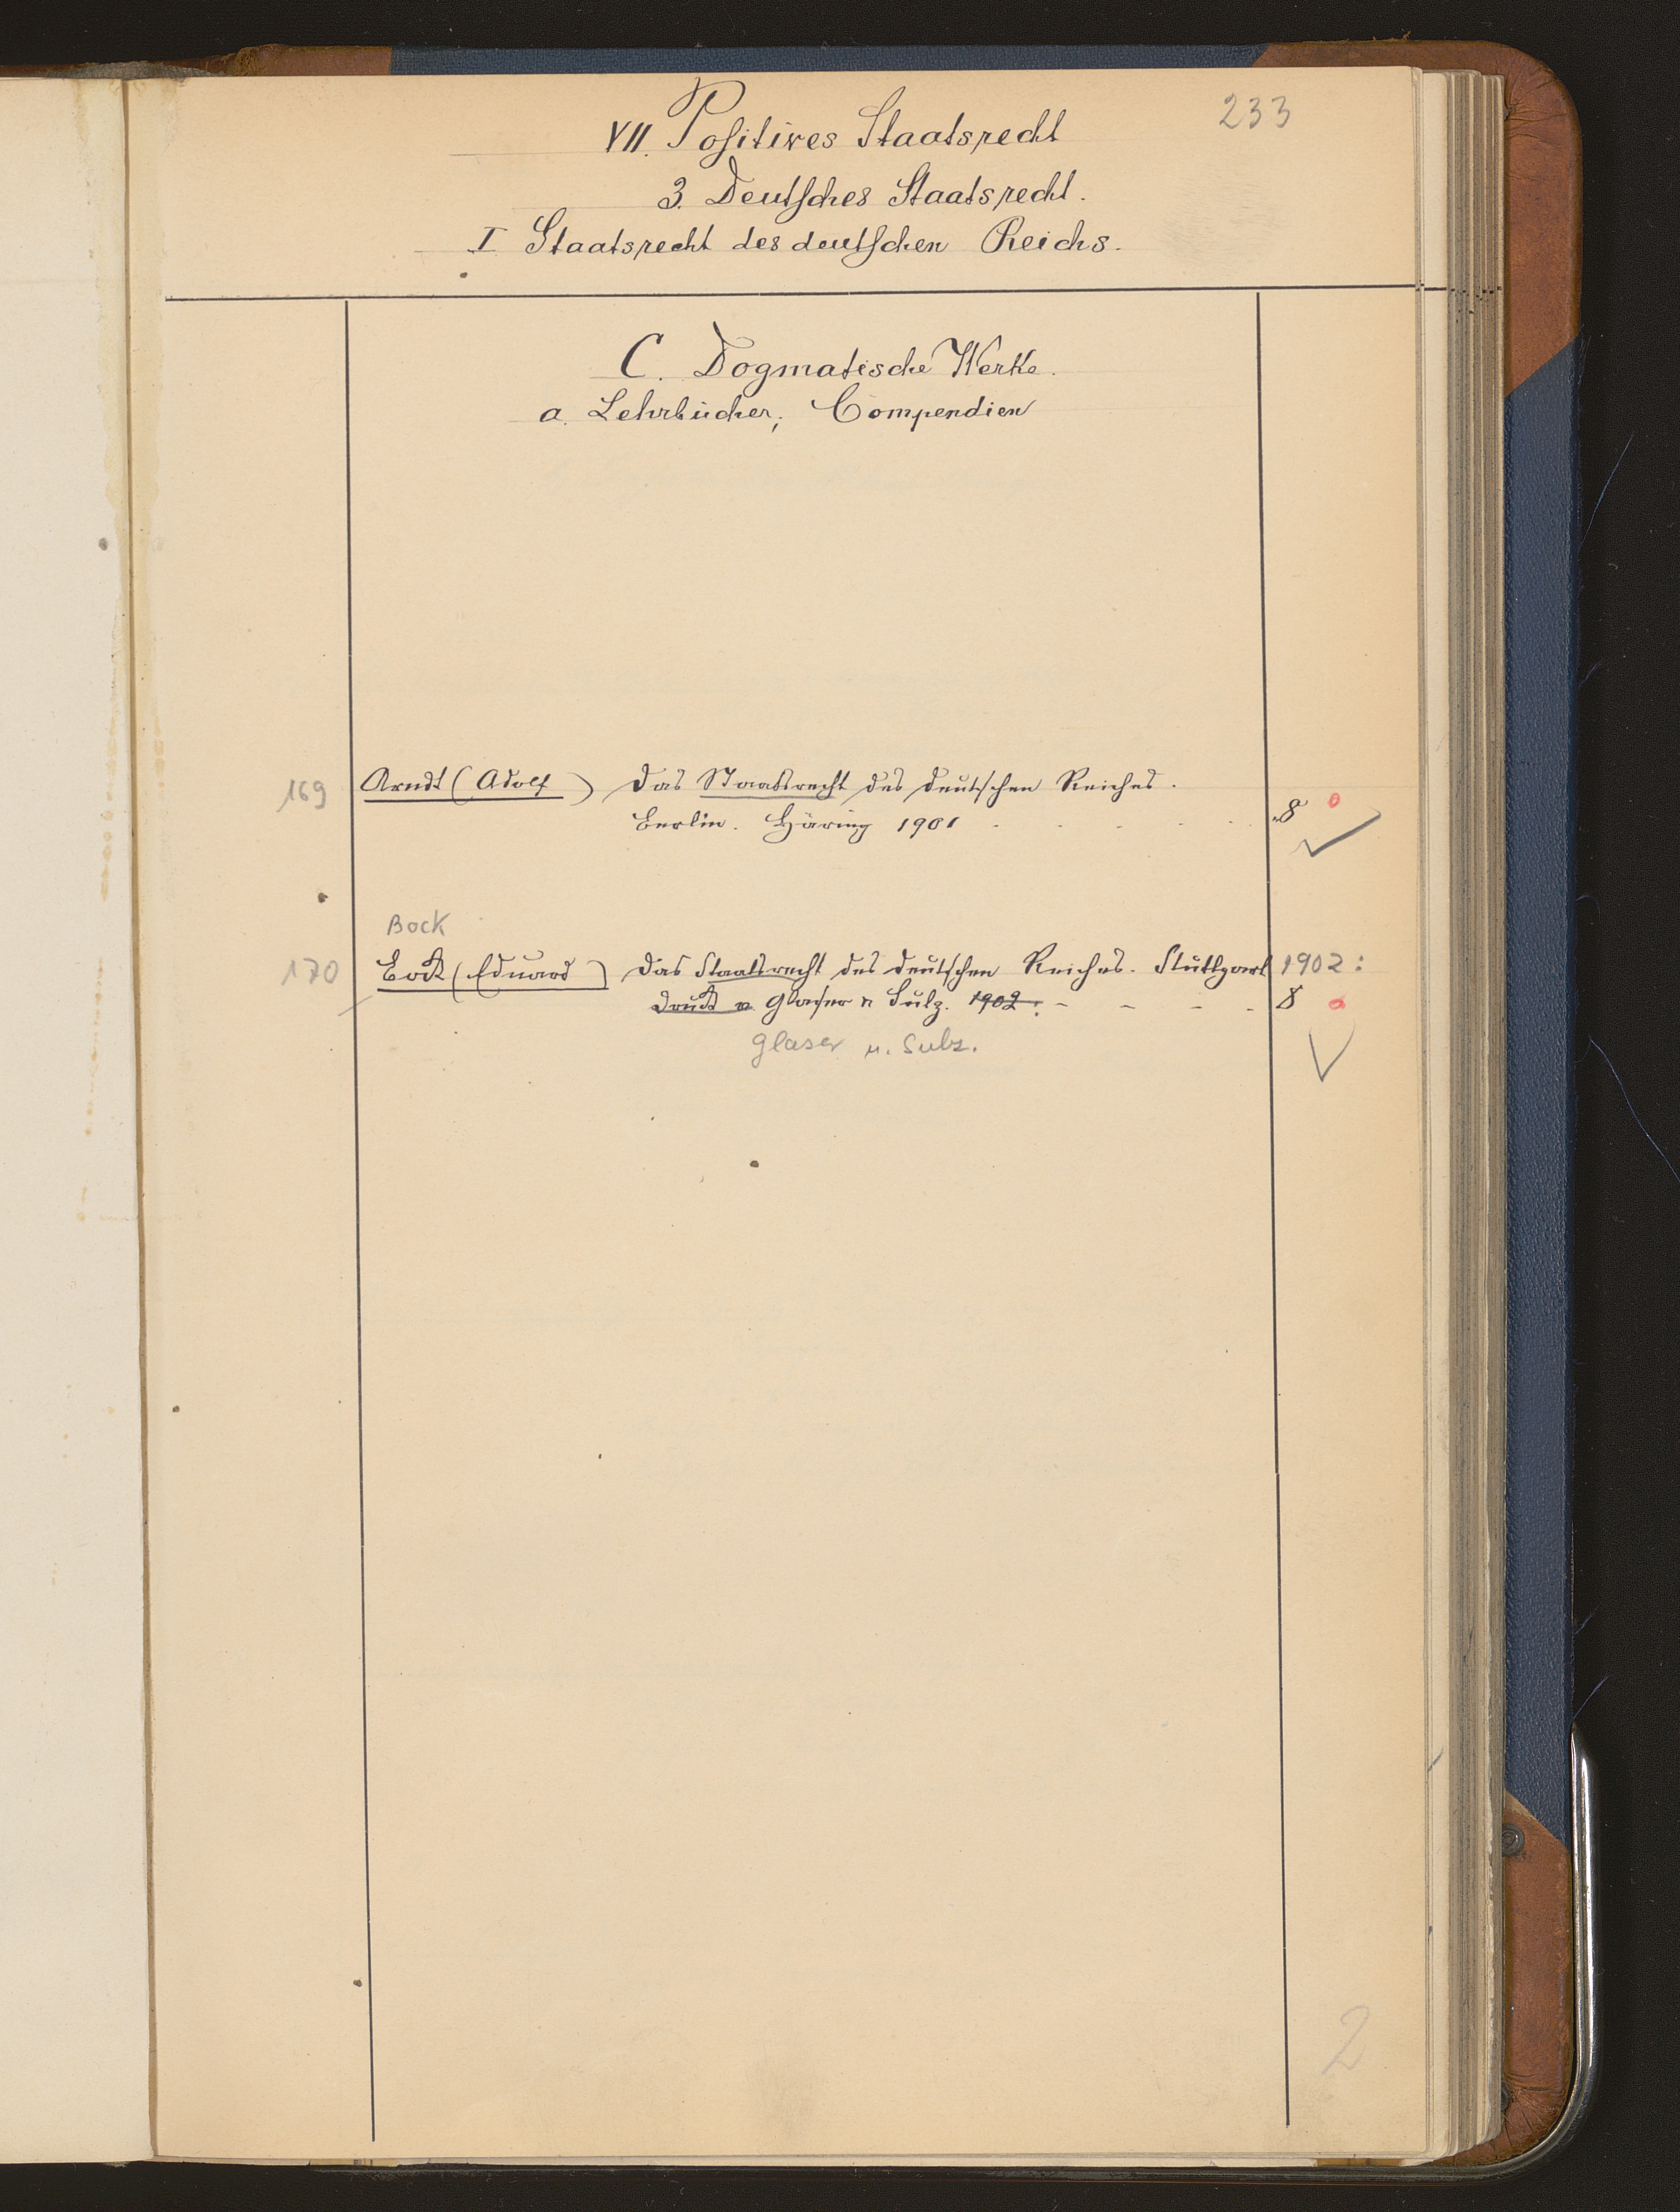 233
VII. Positives Staatsrecht
3. Deutsches Staatsrecht.
I Staatsrecht des deutschen Reichs.
C. Dogmatische Werke.
a. Lehrbücher, Compendien
169 Arndt (Adolf) Das Staatsrecht des deutschen Reiches.
Berlin. Häring 1901 . . . . . 8 0
Bock
170 Bock (Eduard) Das Staatsrecht des deutschen Reiches. Stuttgart 1902:
Druck v Glaser u Sulz. 1902. - - - - 8 0
Glaser u. Sulz.
2